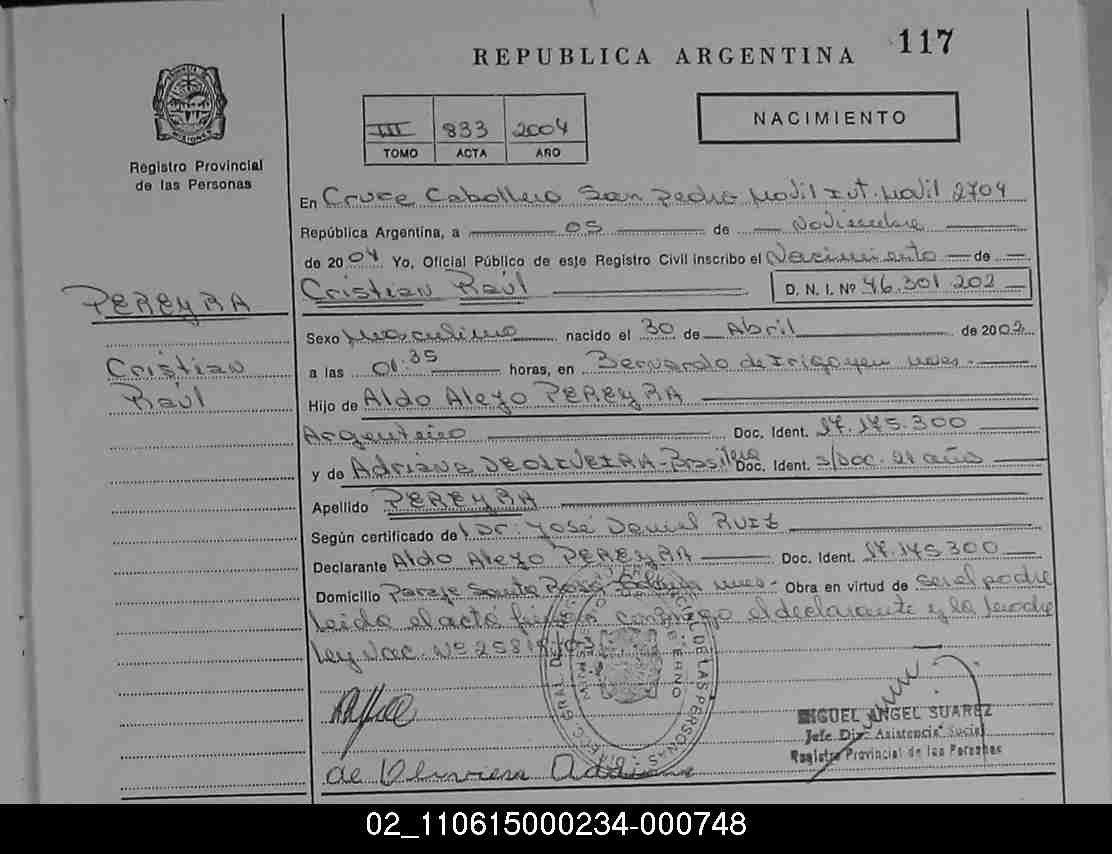 117
REPUBLICA ARGENTINA
NACIMIENTO
III 833 2004
TOMO ACTA AÑO
PROVINCIA DE MISIONES
Registro Provincial
de las Personas
En Cruce Caballero San Pedro Movil Int. Movil 2704
República Argentina, a 05 de Noviembre
de 2004 Yo, Oficial Público de este Registro Civil inscribo el Nacimiento de
Cristian Raúl D. N. I. Nº 46.301.202
PEREYRA
Cristian
Raúl
Sexo Masculino nacido el 30 de Abril de 2002
a las 01:35 horas, en Bernardo de Irigoyen Mnes.-
Hijo de Aldo Alejo PEREYRA
Argentino Doc. Ident. 17.175.300
y de Adriana DEOLIVEIRA-Brasilera Doc. Ident. s/Doc. 21 años
Apellido PEREYRA
Según certificado de Dr. José Daniel RUIZ
Declarante Aldo Alejo PEREYRA Doc. Ident. 17.175.300
Domicilio Paraje Santa Rosa Mnes- Obra en virtud de ser el padre
Leida el acta conmigo el declarante y la madre
Ley Nac. Nº
MIGUEL ANGEL SUAREZ
Jefe Div. Asistencia Social
Registro Provincial de las Personas
DE LAS PERSONAS
de Oliveira
02_110615000234-000748